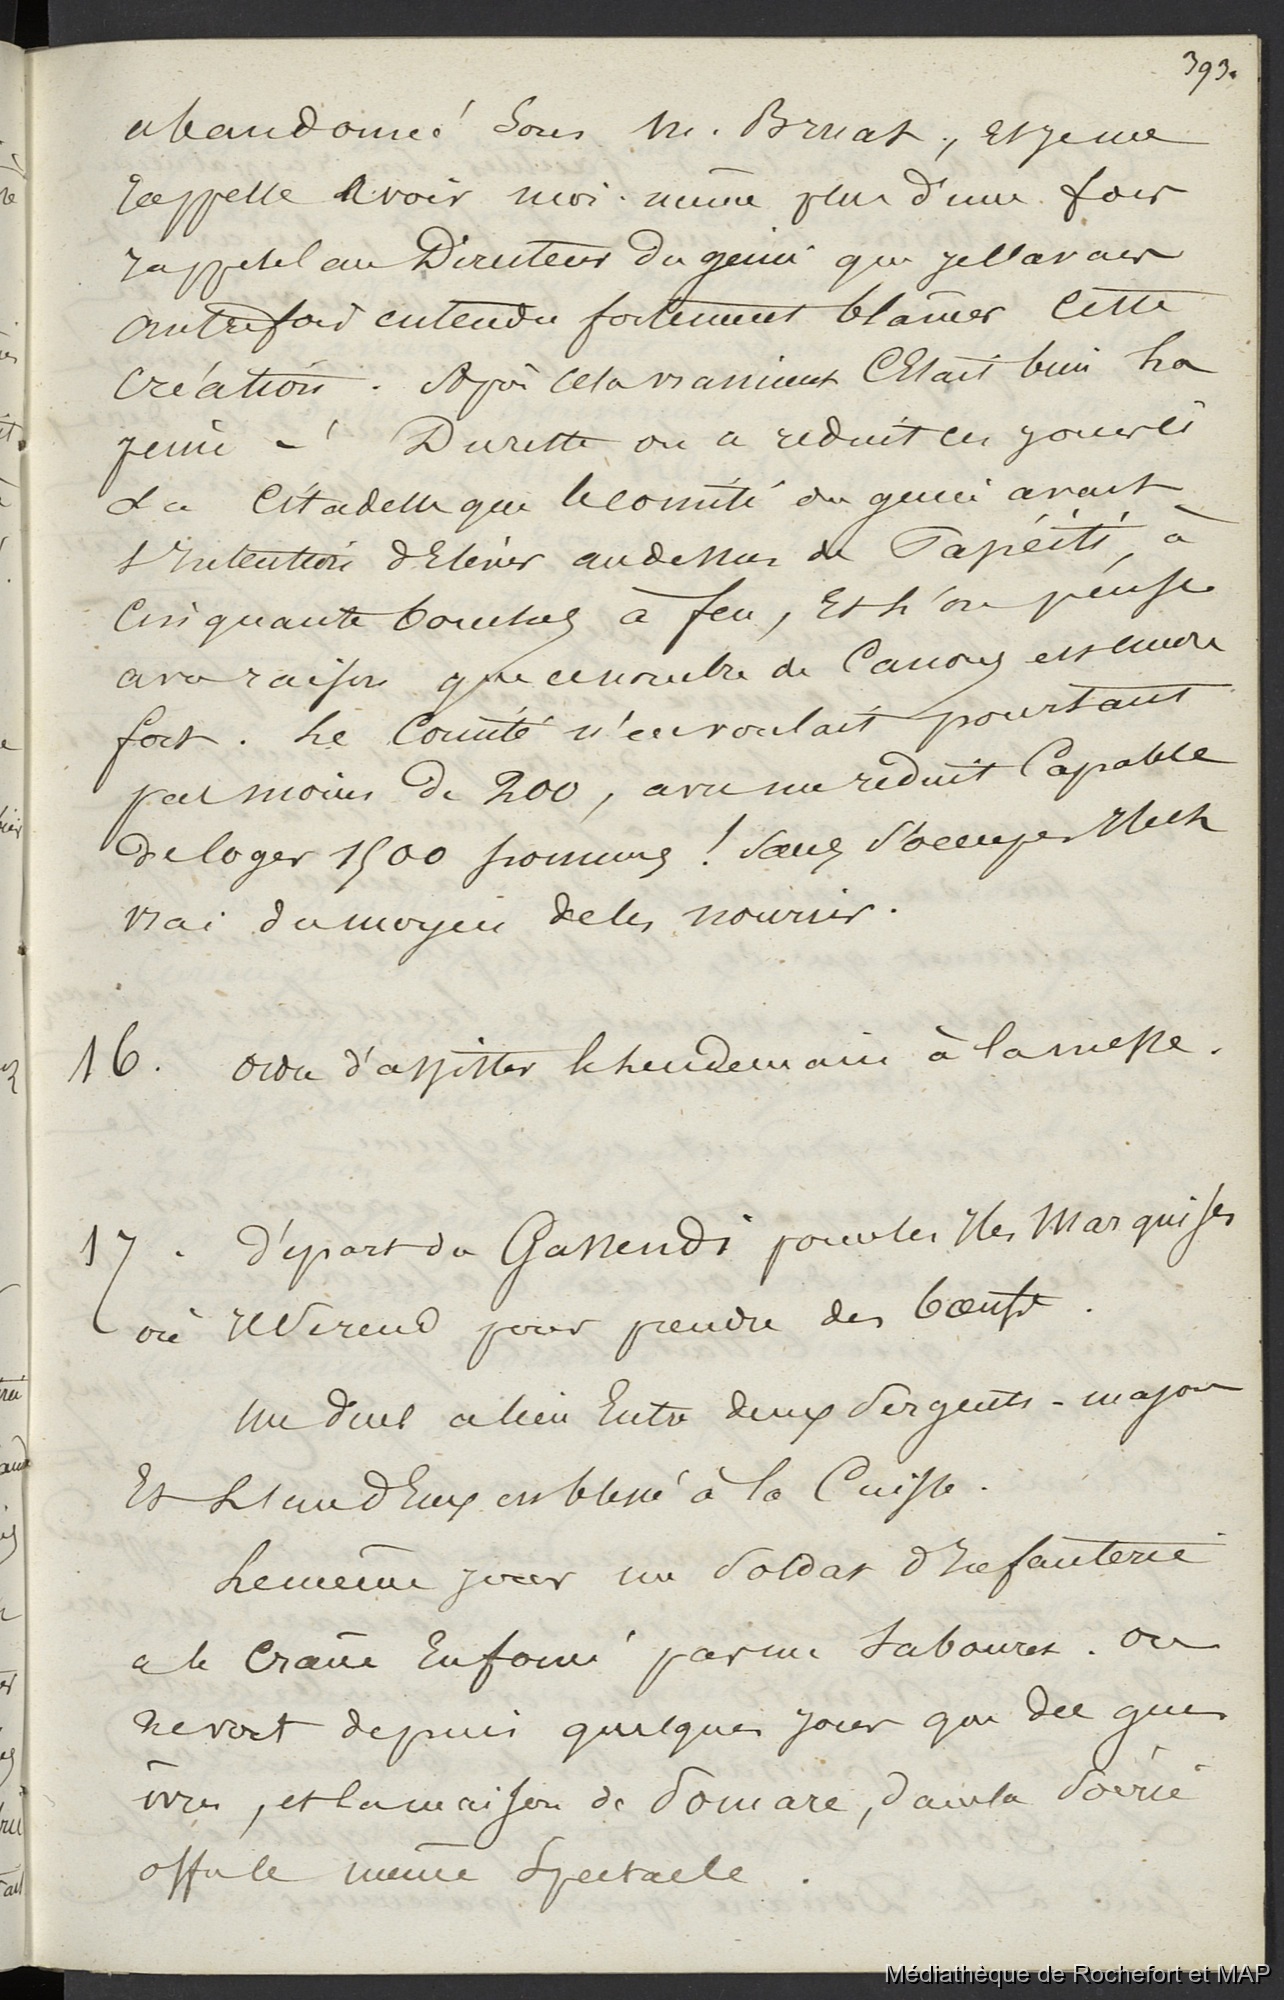 393.
abandonné sous M. Bruat, et je me
rappelle avoir moi-même plus d'une fois
rappelé au Directeur du génie que je l'avais
autrefois entendu fortement blâmer cette
création. Après cela vraiment c'était bien la
peine ! Du reste on a réduit ces jours ci
la Citadelle que le comité du génie avait
l'intention d'élever au dessus de Papéiti, à
cinquante bouches à feu, et l'on pense
avec raison que ce nombre de canons est encore
fort. Le Comité n'en voulait pourtant
pas moins de 200, avec un réduit capable
de loger 1500 hommes ! Sans s'occuper il est
vrai du moyen de les nourrir.
16. Ordre d'assister le lendemain à la messe.
17. Départ du Gassendi pour les Iles Marquises
où il se rend pour prendre des bœufs.
Un duel a lieu entre deux sergents-major
et l'un d'eux est blessé à la cuisse.
Le même jour un soldat d'infanterie
a le crâne enfoncé par un tabouret. On
ne voit depuis quelques jours que des gens
ivres, et la maison de Pomare, dans la soirée
offre le même spectacle.
Médiathèque de Rochefort et MAP